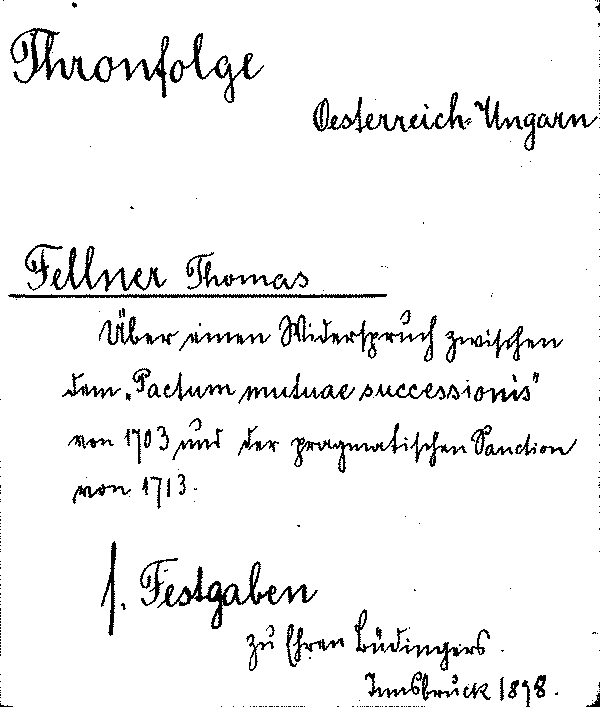 Thronfolge
Oesterreich-Ungarn
Fellner Thomas
Über einen Widerspruch zwischen
dem „Pactum mutuae successionis“
von 1703 und der pragmatischen Sanction
von 1713.
s. Festgaben
zu Ehren Büdingers.
Innsbruck 1898.